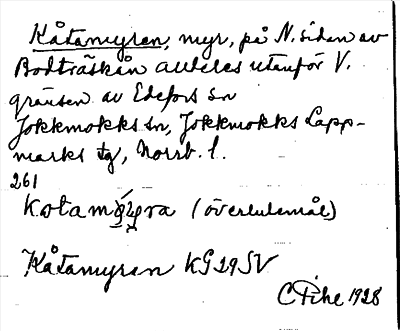 Kåtamyren, myr, på N. sidan av
Bodträskån alldeles utanför V.
gränsen av Edefors sn
Jokkmokks sn, Jokkmokks Lapp-
marks tg, Norrb. l.
261
(överlulemål)
Kåtamyren KG 29 SV
C Pihl 1928